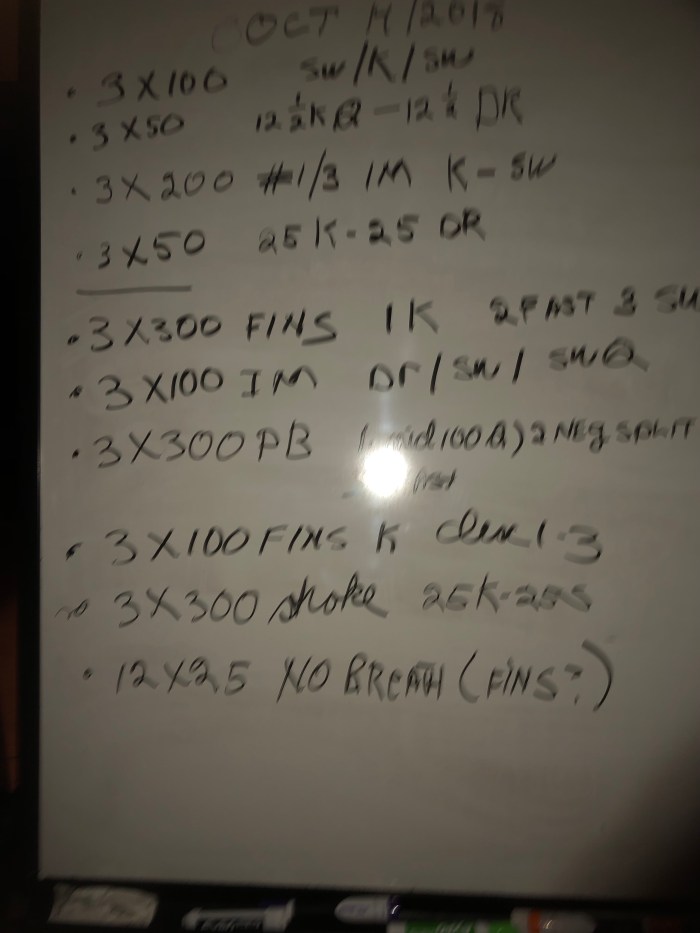 OCT 14/2018
• 3 X 100 SW/K/SW
• 3 X 50 12 1/2 K Q - 12 1/2 DR
• 3 X 200 #1/3 IM K - SW
• 3 X 50 25 K - 25 DR
• 3 X 300 FINS 1K 2 FAST 3 SW
• 3 X 100 IM Dr / SW / SWQ
• 3 X 300 PB mid 100 Q) 2 NEg SPLIT
• 3 X 100 FINS K 1-3
3 X 300 stroke 25K-25S
• 12 X 25 NO BREATH (FINS?)